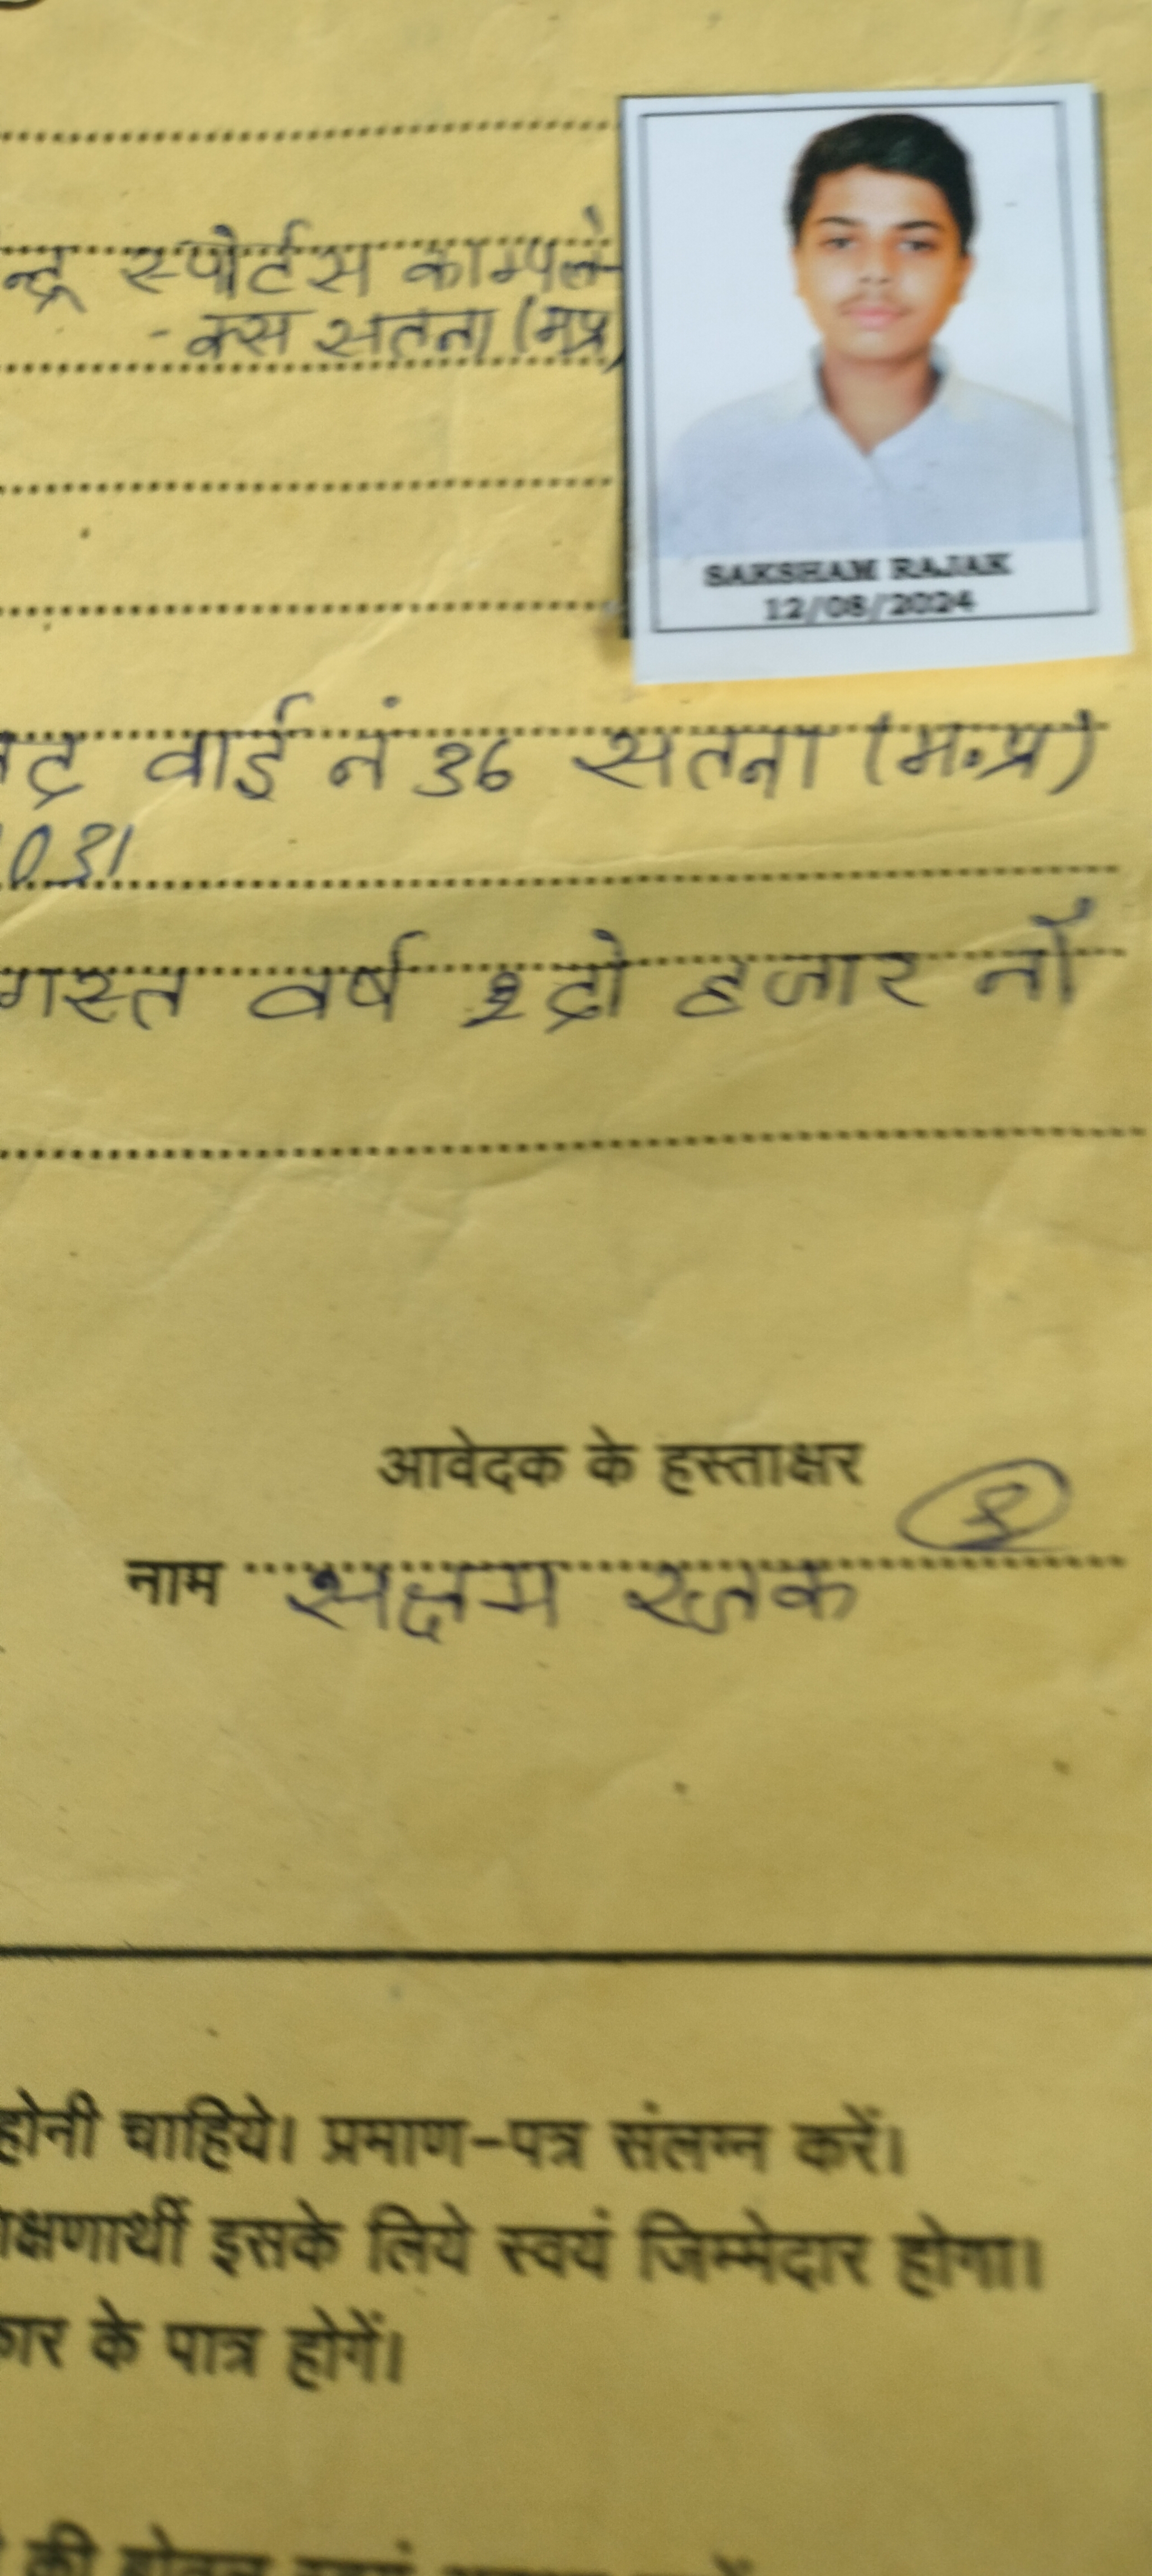 न्द्र स्पोर्टस काम्पले-
- क्स सतना (मप्र)
SAKSHAM RAJAK
12/08/2024
वार्ड नं 36 सतना (म.प्र)
031
गस्त वर्ष दो हजार नौ
आवेदक के हस्ताक्षर
नाम सक्षम रजक
होनी चाहिये। प्रमाण-पत्र संलग्न करें।
क्षणार्थी इसके लिये स्वयं जिम्मेदार होगा।
कार के पात्र होगें।
की